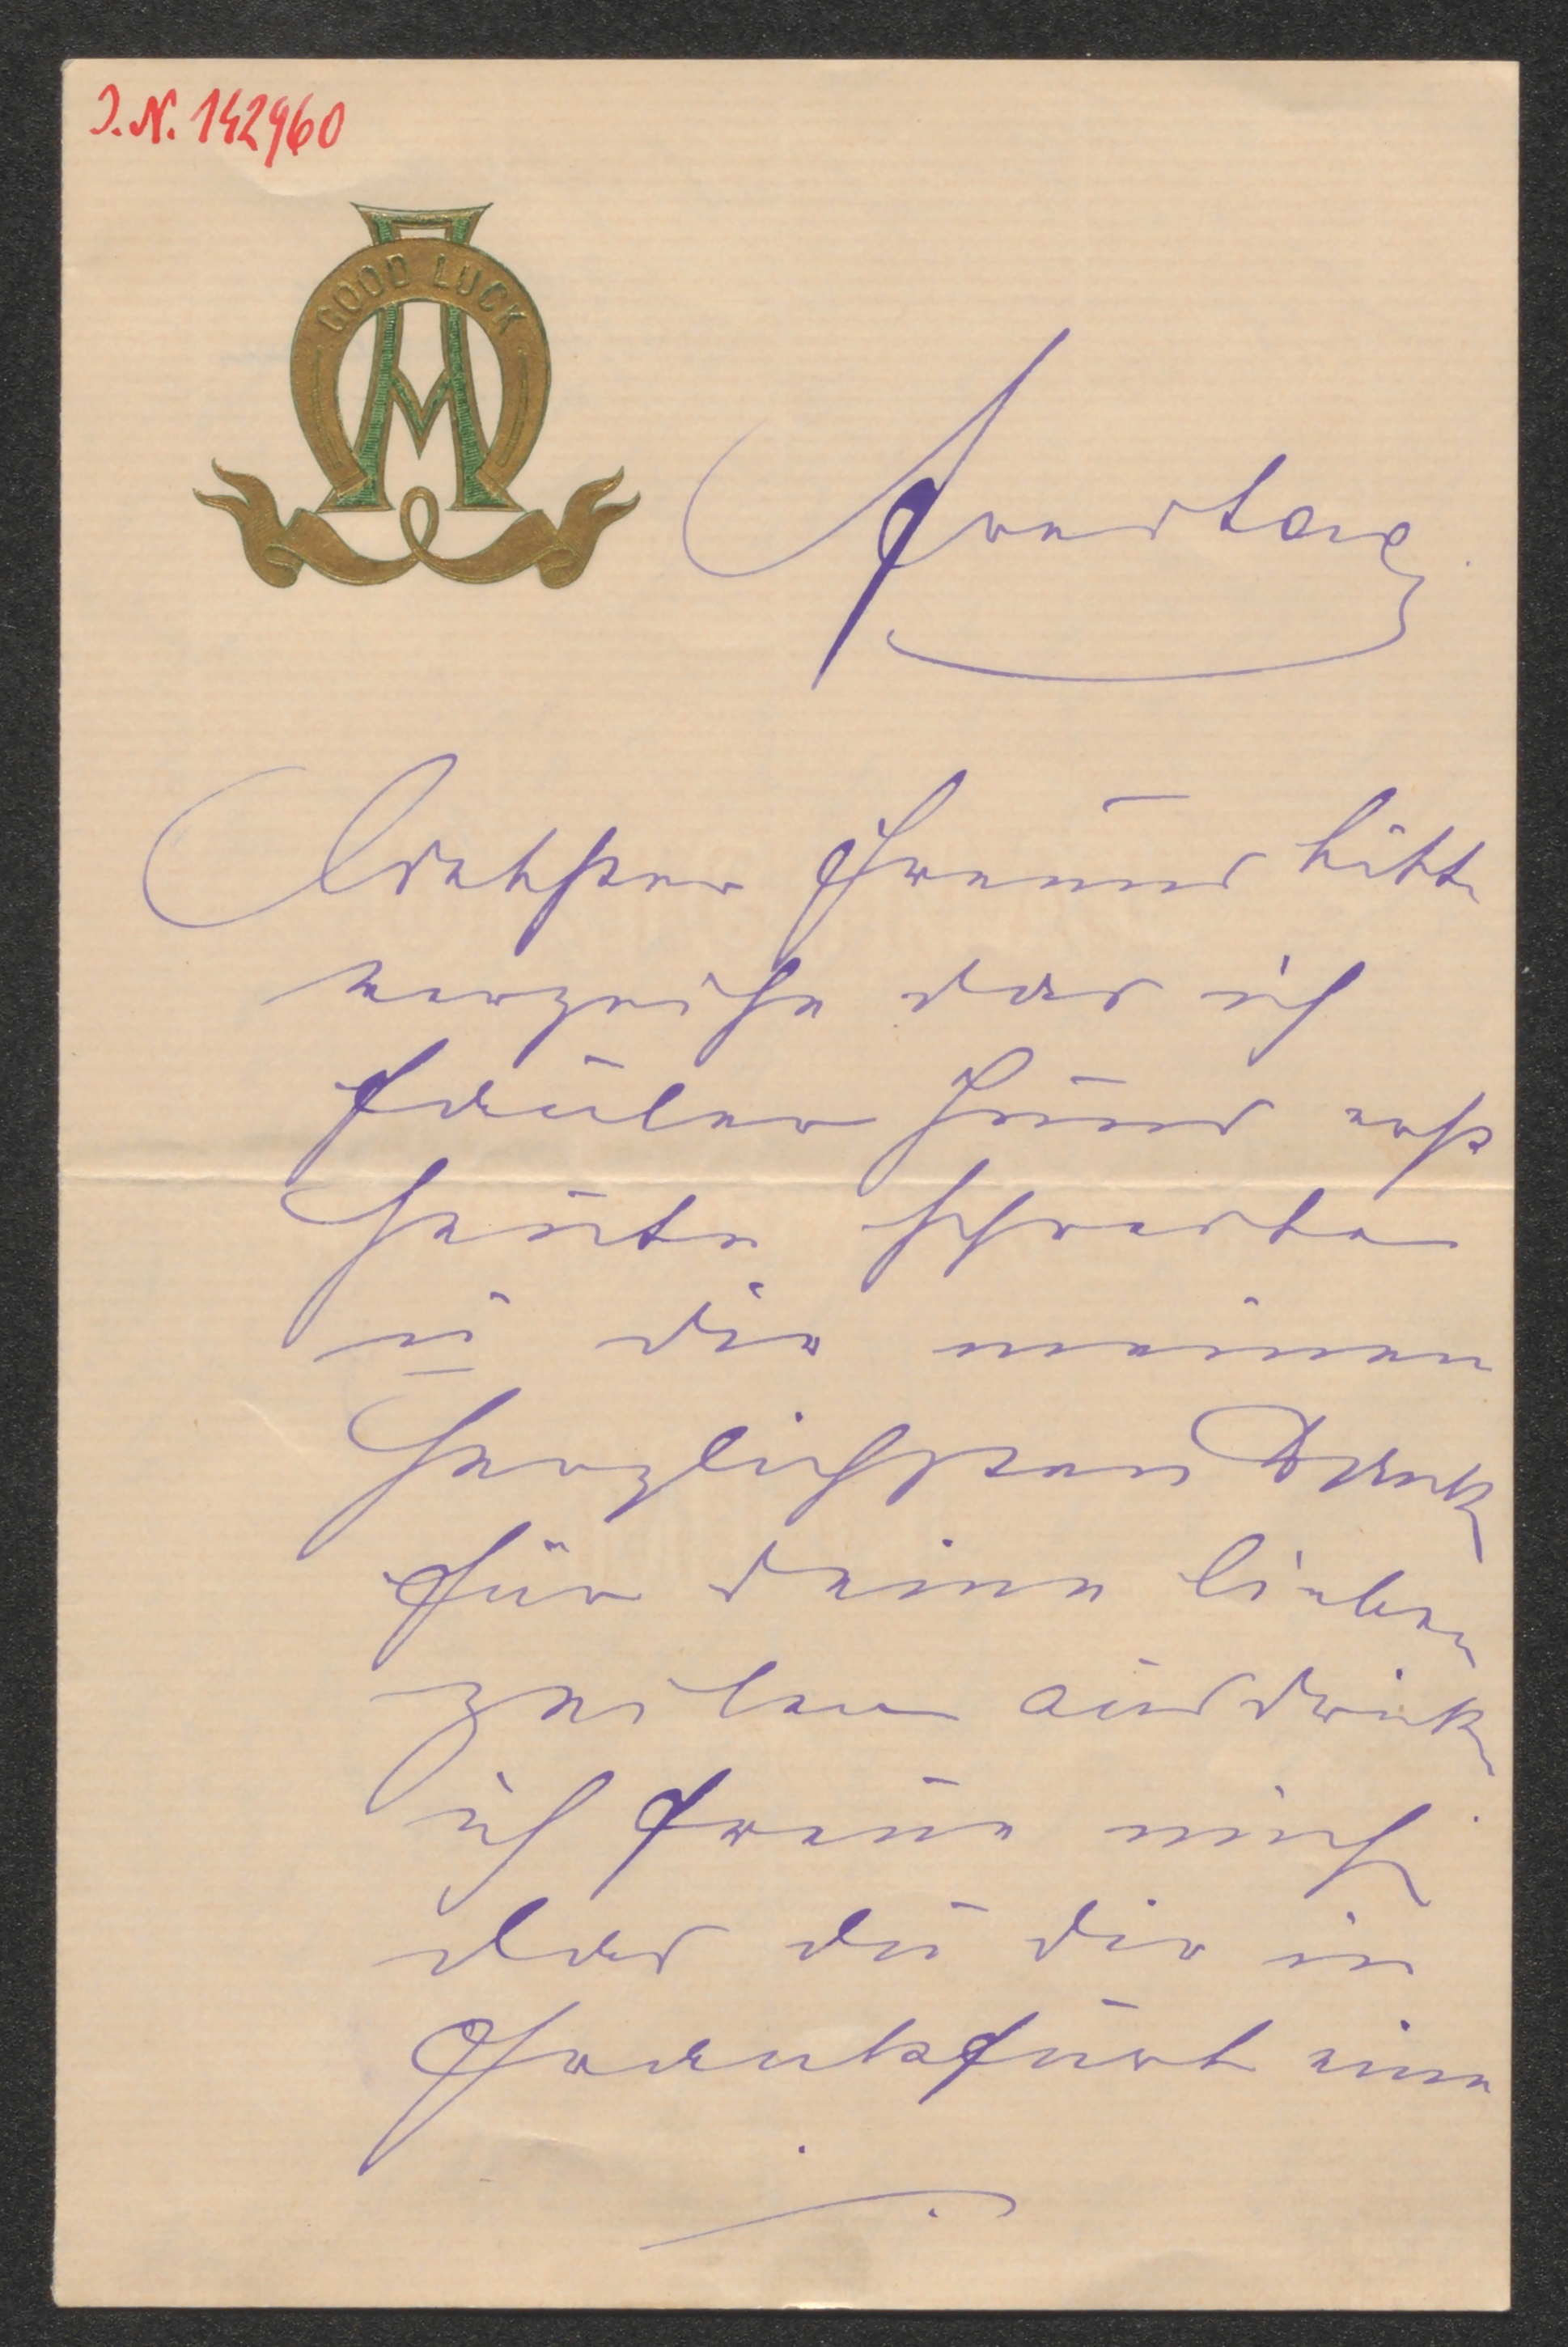 J.N. 142960
GOOD LUCK
Freitag
Liebster Freund bitte
verzeihe das ich
fauler Hund erst
heute schreibe
u dir meinen
herzlichsten Dank
für deine lieben
zeilen ausdrück
ich freue mich
das du dir in
Frankfurt eine